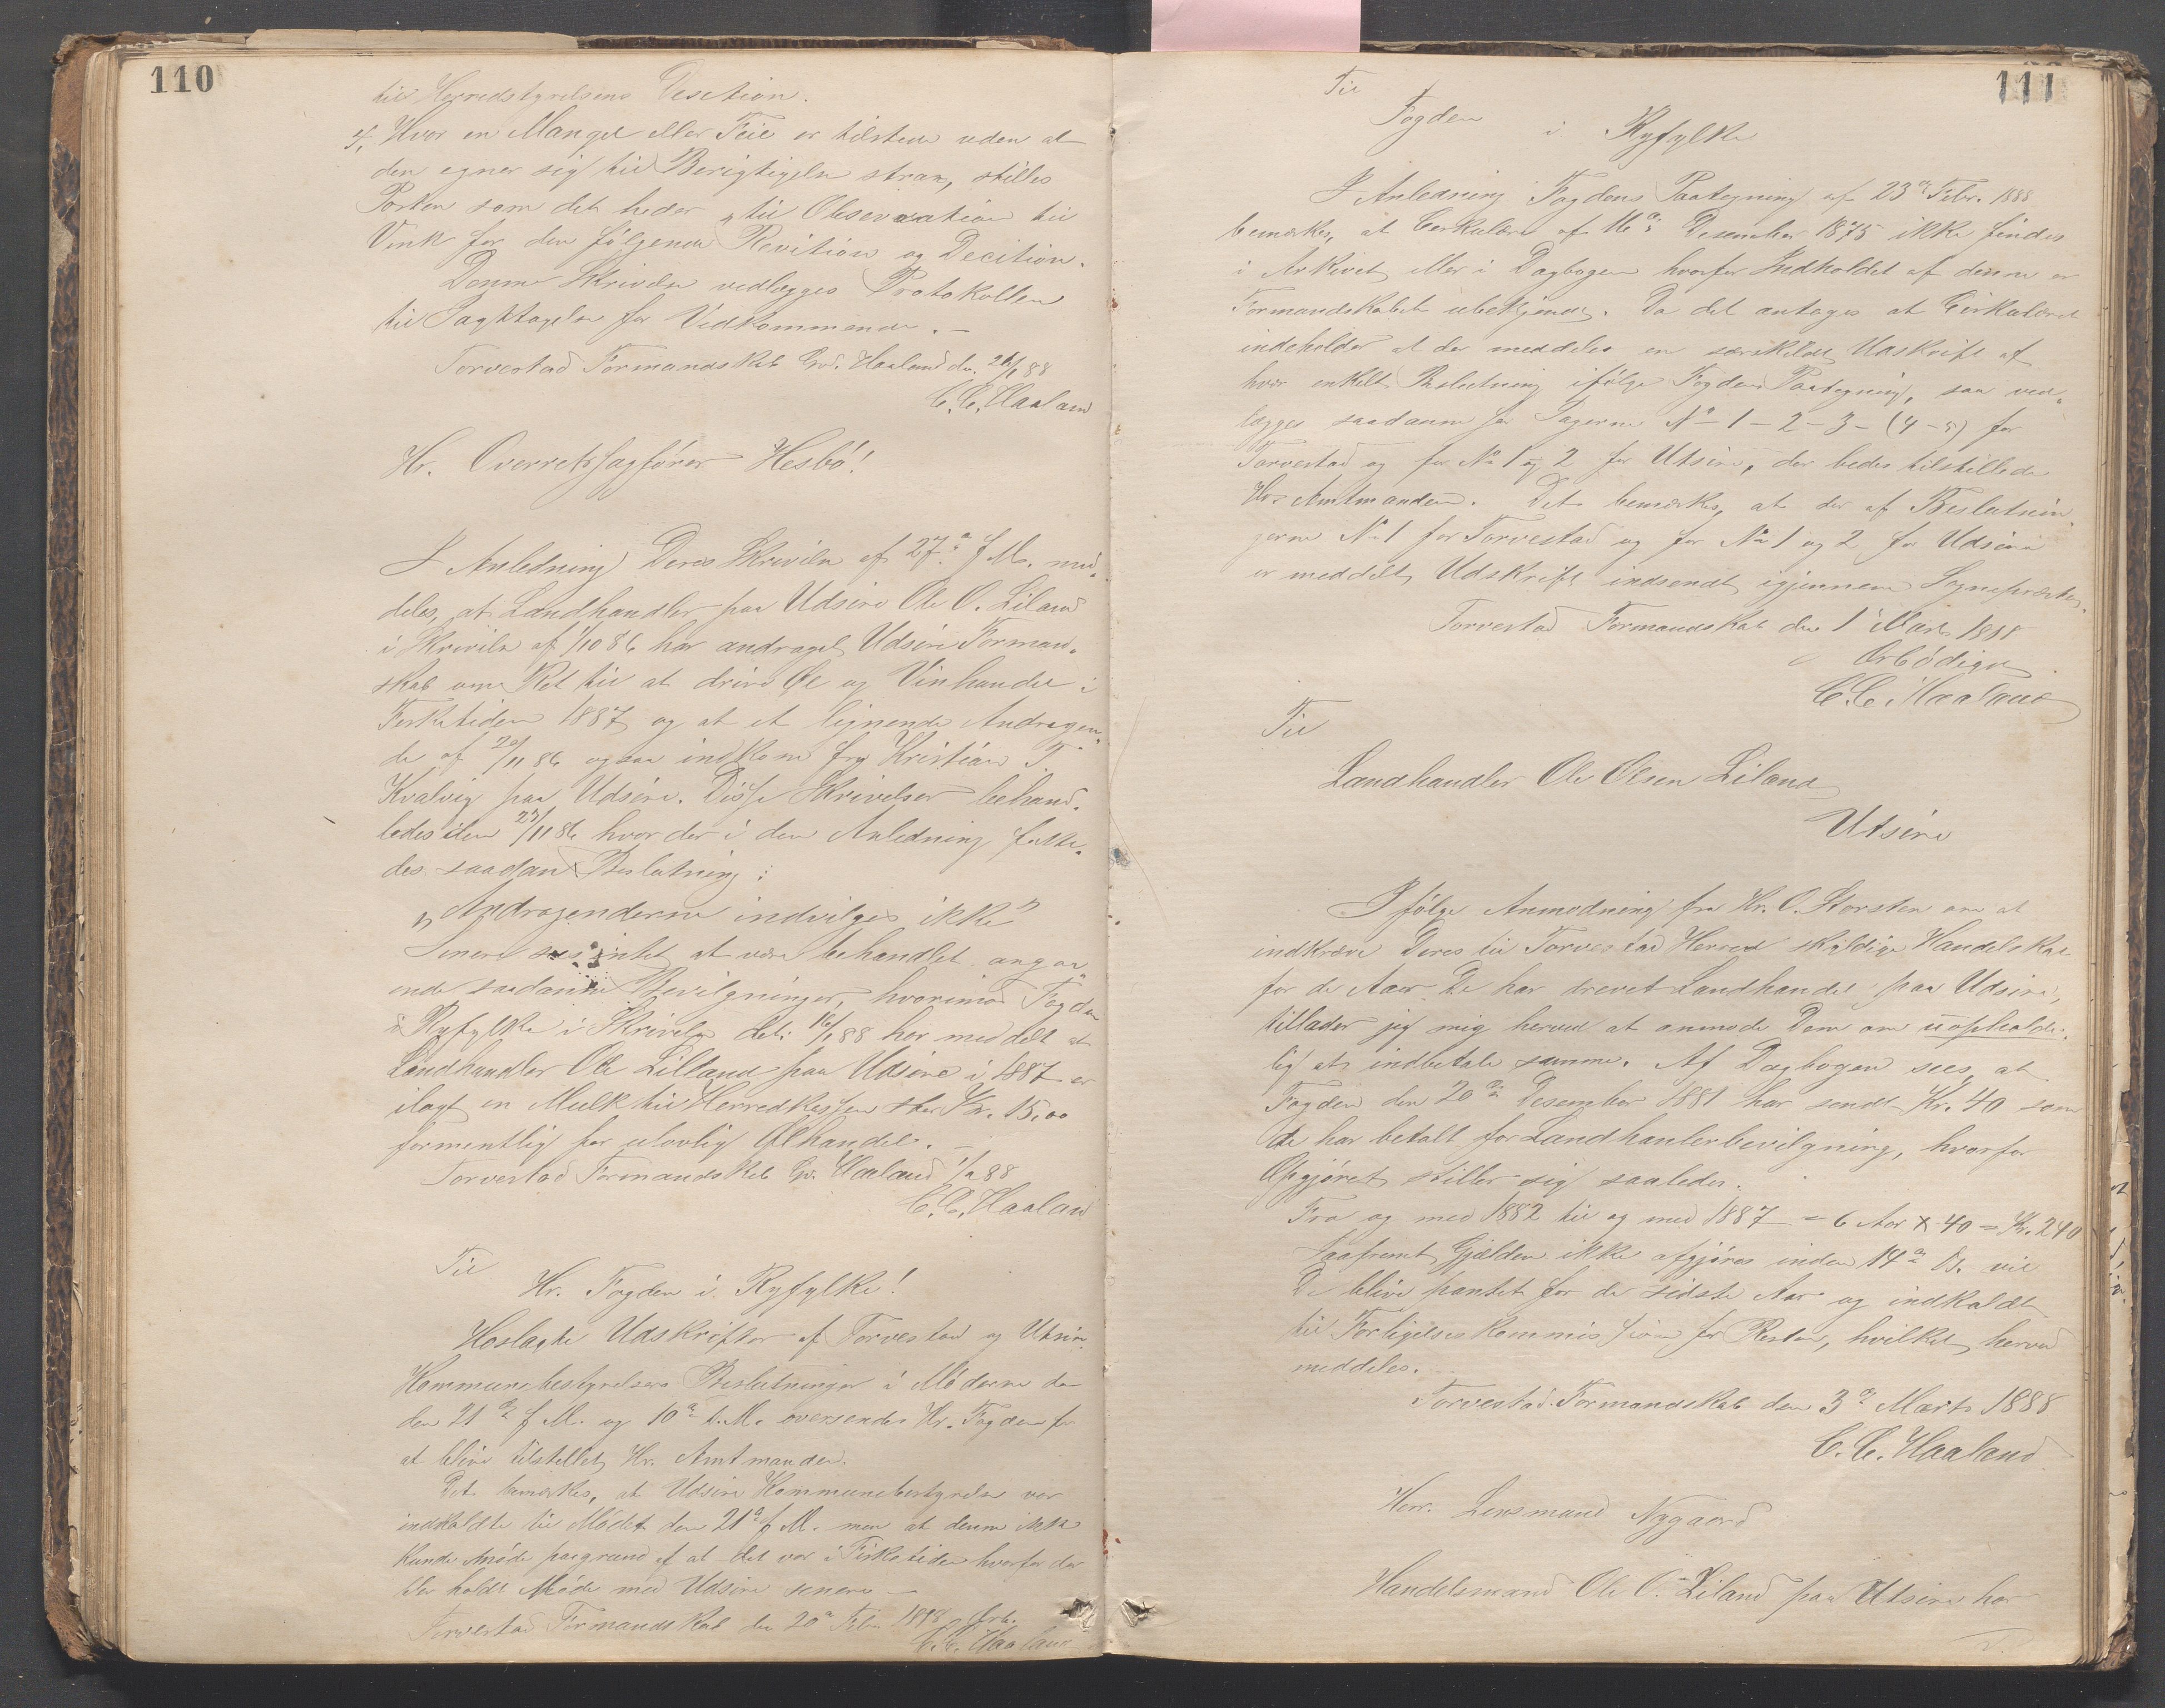 110
til Herredstyrelsens Desition.
4, Hvor en Mangel eller Feil er tilstede uden at
den egner sig til Berigtigelse strax, stilles
Posten som det heder "til Observation til
Vink for den følgende Revition og Decition.
Denne Skrivelse vedlægges Protokollen
til Iagttagelse for Vedkommende. —
Torvestad Formandskab Grd. Haaland den 26/1 88
C. C. Haaland
Hr. Overretssagfører Hesbø!
I Anledning Deres Skrivelse af 27de f. M. med-
deles, at Landhandler paa Udsire Ole O. Liland
i Skrivelse af 1/10 86 har andraget Udsire Forman-
skab om Ret til at drive Øl og Vinhandel i
Fisketiden 1887 og at et lignende Andragen-
de af 20/11 86 ogsaa indkom fra Kristian T.
Kvalvig paa Udsire. Disse Skrivelser behand-
ledes den 23/11 86 hvor der i den Anledning fatte-
des saadan Beslutning:
"Andragenderne indvilges ikke"
Senere sees intet at være behandlet angaa-
ende saadanne Bevilgninger, hvorimod Fogden
i Ryfylke i Skrivelse dat: 16/1 88 har meddelt at
Landhandler Ole Lilland paa Udsire i 1887 er
ilagt en Mulkt til Herredkassen stor Kr. 15,00
formentlig for ulovlig Ølhandel. —
Torvestad Formandskab Grd. Haaland 1/2 88
C. C. Haaland
Til
Hr. Fogden i Ryfylke!
Hoslagte Udskrifter af Torvestad og Utsire
Kommunebestyrelsers Beslutninger i Møderne den
den 21de f. M. og 10de d. M. oversendes Hr. Fogden for
at blive tilstillet Hr. Amtmanden.
Det bemærkes, at Udsire Kommunebestyrelse var
indkaldte til Mødet den 21de f. M. men at denne ikke
kunde møde paagrund af at det var i Fisketiden hvorfor der
blev holdt Møde med Udsire senere —
Torvestad Formandskab den 20de Febr 1888 Ærb.
C. C. Haaland
111
Til
Fogden i Ryfylke
I Anledning Fogdens Paategning af 23de Febr. 1888
bemærkes, at Cerkulære af 16de Desember 1875 ikke findes
i Arkivet eller i Dagbogen hvorfor Indholdet af denne er
Formandskabet ubekjendt. Da det antages at Cirkulæret
indeholder at der meddeles en særskildt Udskrift af
hver enkelt Beslutning ifølge Fogdens Paategning, saa ved-
lægges saadanne for Sagerne No 1 - 2 - 3 - (4 - 5) for
Torvestad og for No 1 og 2 for Utsire, der bedes tilstillede
Hr. Amtmanden. Det bemærkes, at der af Beslutnin-
gerne No 1 for Torvestad og for No 1 og 2 for Udsire
er meddelt Udskrift indsendt igjennem Sognepræsten.
Torvestad Formandskab den 1ste Marts 1888
Ærbødigst
C. C. Haaland
Til
Landhandler Ole Olsen Liland
Utsire
Ifølge Anmodning fra Hr. O. Storsten om at
indkræve Deres til Torvestad Herred skyldige Handelskat
for de Aar De har drevet Landhandel paa Udsire,
tillader jeg mig herved at anmode Dem om uopholde-
lig at indbetale samme. Af Dagbogen sees, at
Fogden den 20de Desember 1881 har sendt Kr. 40 som
de har betalt for Landhanlerbevilgning, hvorfor
Opgjøret stiller sig saaledes.
Fra og med 1882 til og med 1887 = 6 Aar x 40 = Kr. 240
Saafremt Gjælden ikke afgjøres inden 14de Ds. vil
De blive pantet for de sidste Aar og indkaldt
til Forligelseskommission for Resten, hvilket herved
meddeles.
Torvestad Formandskab den 3de Marts 1888
C. C. Haaland
Herr. Lensmand Nygaard
Handelsmand Ole O. Liland paa Utsire har